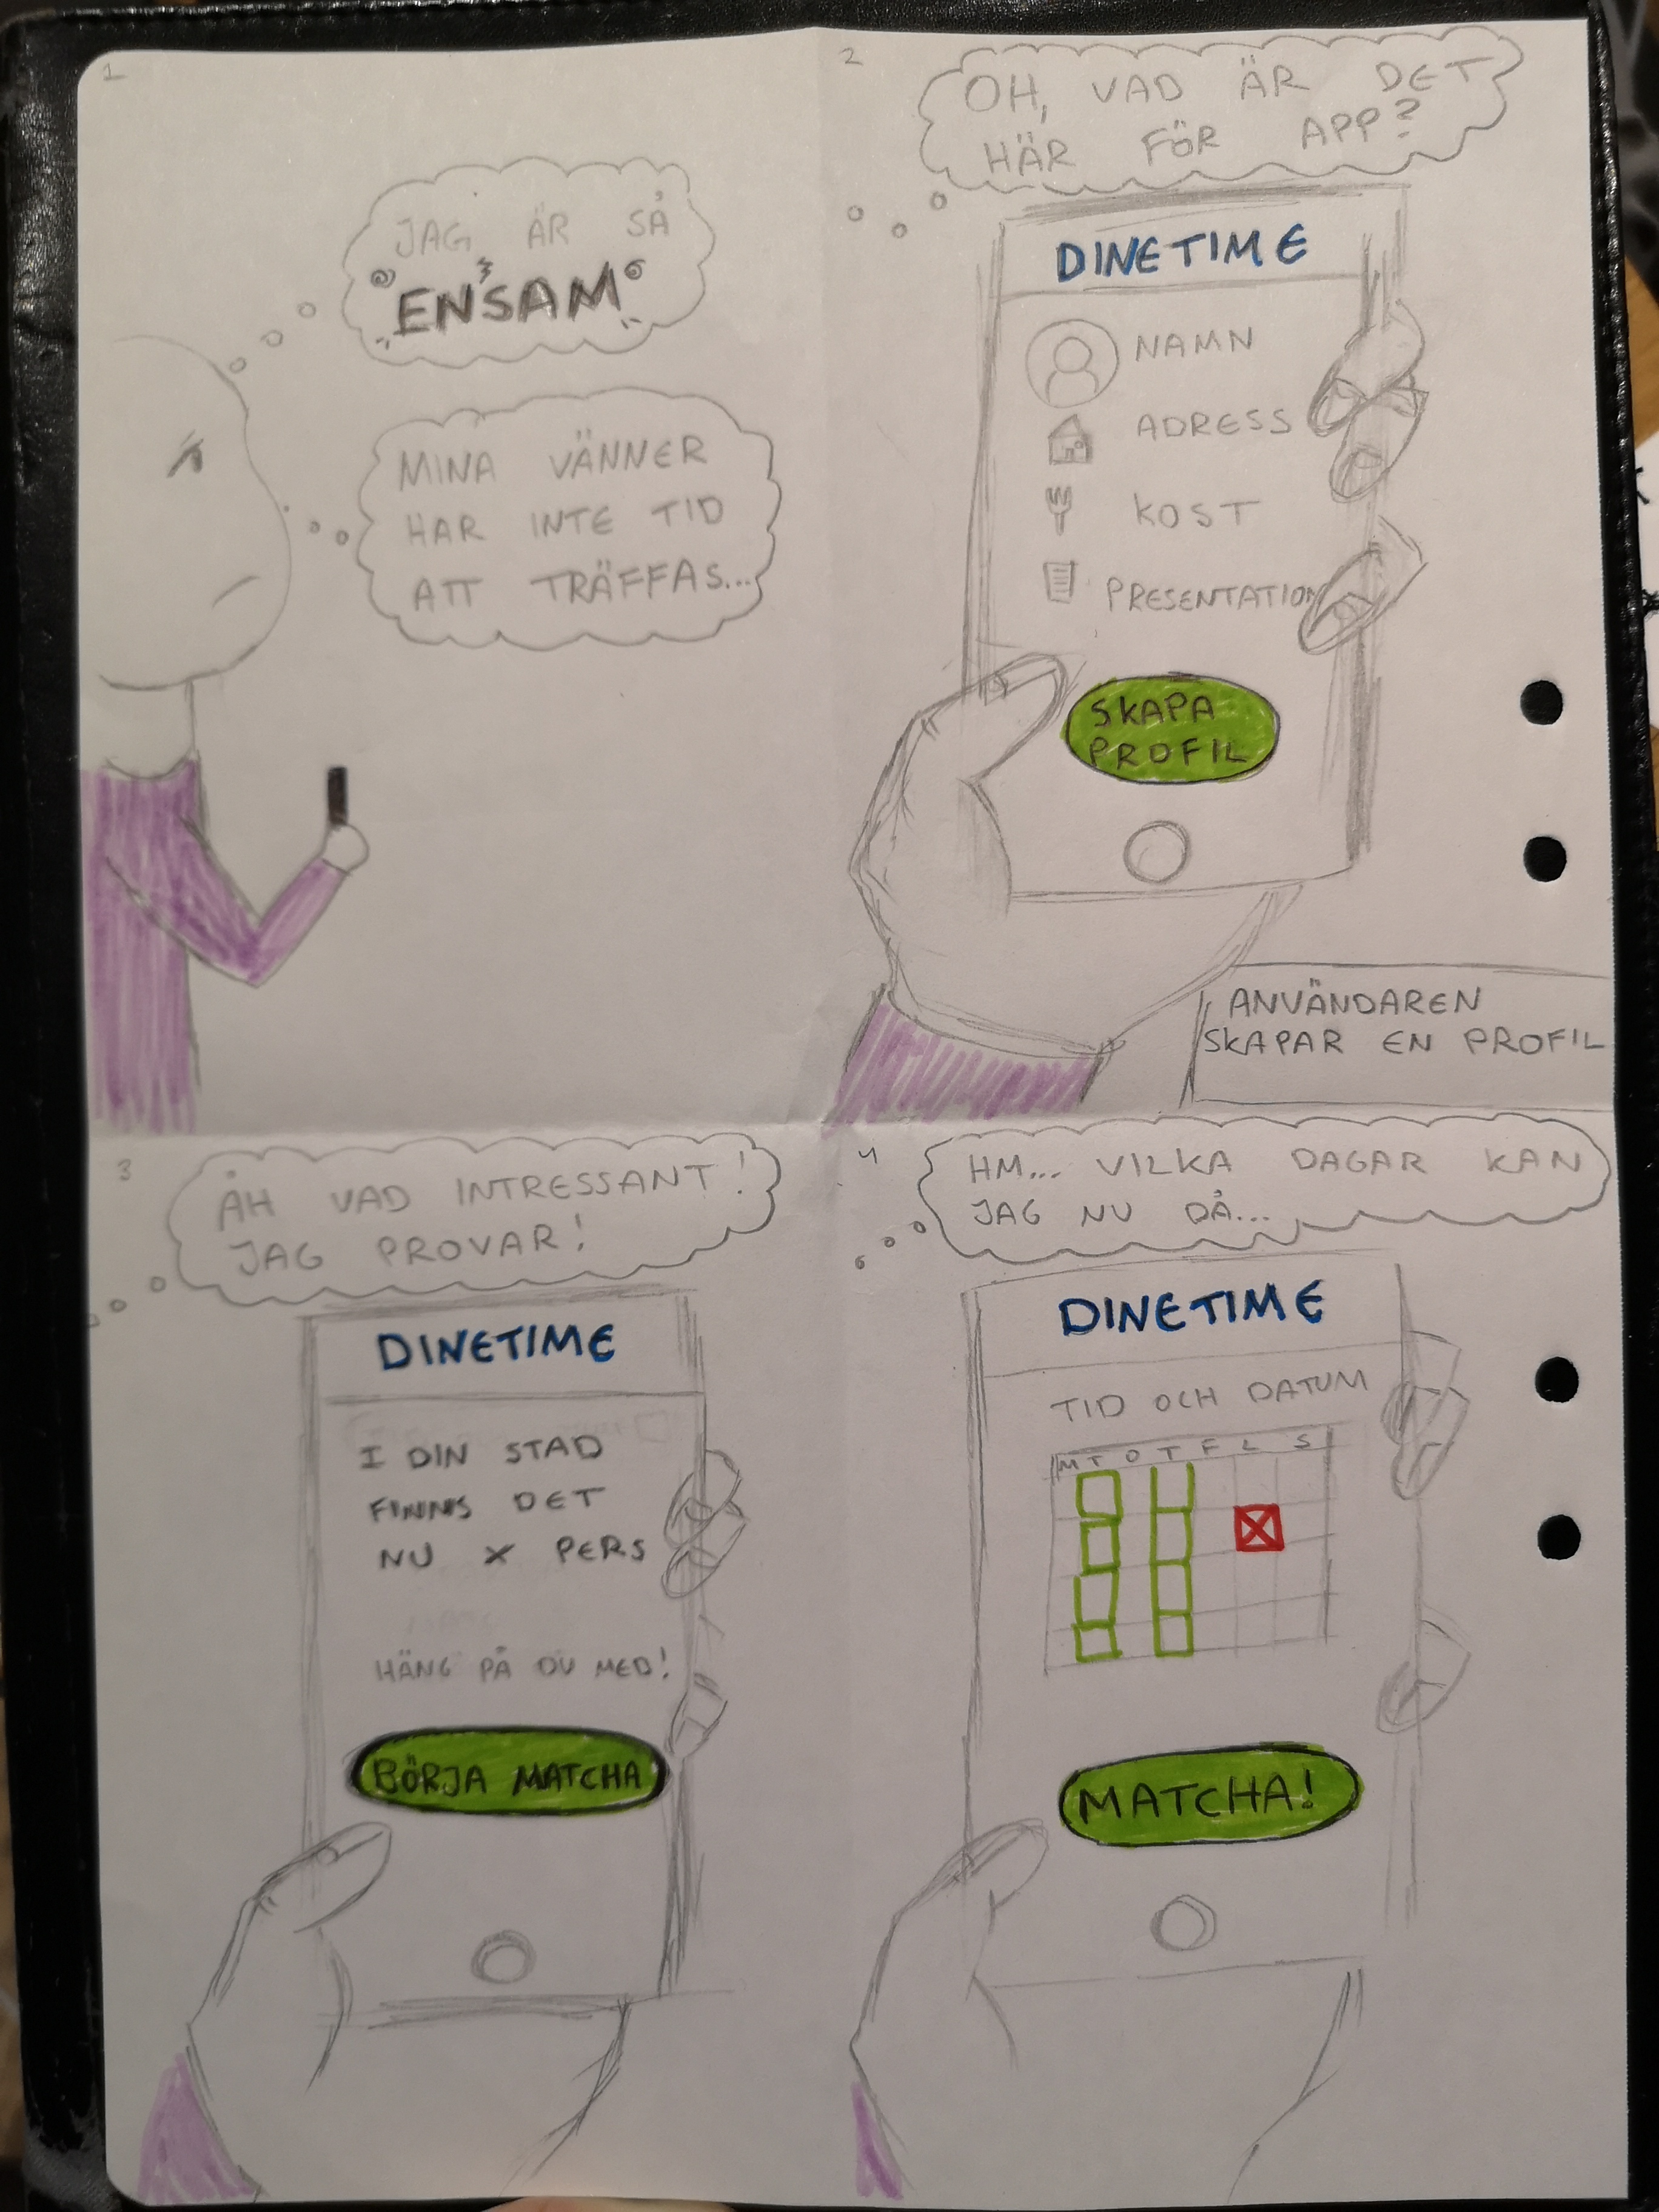 1
JAG ÄR SÅ
ENSAM
MINA VÄNNER
HAR INTE TID
ATT TRÄFFAS...
2
OH, VAD ÄR DET
HÄR FÖR APP?
DINETIME
NAMN
ADRESS
KOST
PRESENTATION
SKAPA
PROFIL
ANVÄNDAREN
SKAPAR EN PROFIL
3
ÅH VAD INTRESSANT!
JAG PROVAR!
DINETIME
I DIN STAD
FINNS DET
NU X PERS
HÄNG PÅ DU MED!
BÖRJA MATCHA
4
HM... VILKA DAGAR KAN
JAG NU DÅ...
DINETIME
TID OCH DATUM
M T O T F L S
MATCHA!